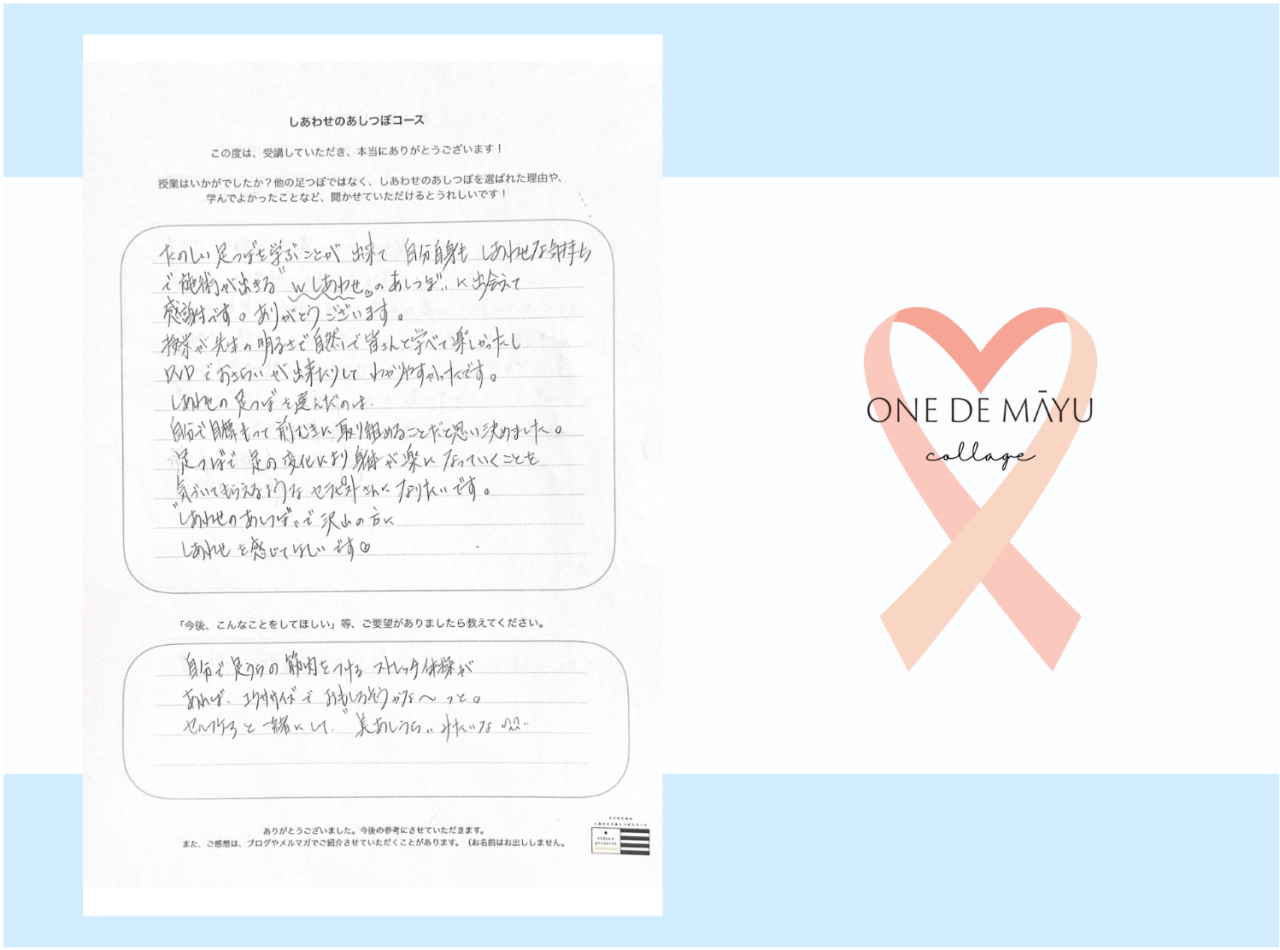 しあわせのあしつぼコース
この度は、受講していただき、本当にありがとうございます！
授業はいかがでしたか？他の足つぼではなく、しあわせのあしつぼを選ばれた理由や、
学んでよかったことなど、聞かせていただけるとうれしいです！
たのしい足つぼを学ぶことが 出来て 自分自身も しあわせな気持ち
で施術が出きる “Wしあわせ。のあしつぼ” に出会えて
感謝です。ありがとうございます。
授業が先生の明るさで自然で皆さんと学べて楽しかったし
DVDでおさらいが出来たりして わかりやすかったです。
しあわせの足つぼを選んだのは、
自分で目標もって前むきに取り組めることだと思い決めました。
足つぼで足の変化により身体が楽になっていくことを
気づいてもらえるようなセラピストさんになりたいです。
“しあわせのあしつぼ”で沢山の方に
しあわせを感じてほしいです♡
「今後、こんなことをしてほしい」等、ご要望がありましたら教えてください。
自分で足うらの筋肉をつける ストレッチ体操が
あれば、エクササイズで おもしろそうかな〜っと。
セルフケアと一緒にして、“美あしうら”みたいな
ありがとうございました。今後の参考にさせていただきます。
また、ご感想は、ブログやメルマガでご紹介させていただくことがあります。（お名前はお出ししません。
ONE DE MĀYU
collage